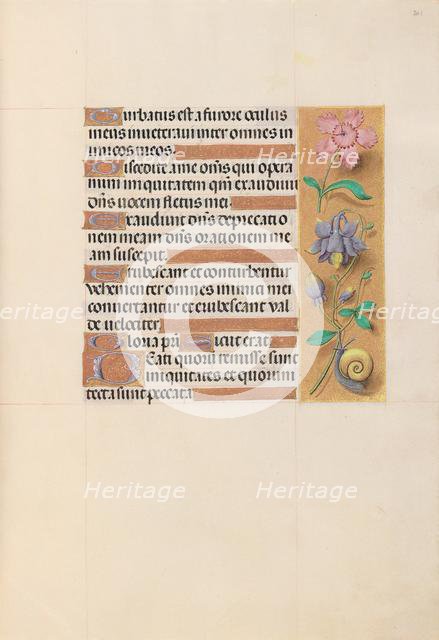 201
Turbatus est a furore oculus
meus inveteravi inter omnes in
imicos meos.
Discedite a me oms qui opera
mini iniquitatem qm exaudivit
dns vocem fletus mei.
Exaudivit dns deprecati
onem meam dns orationem me
am suscepit.
Erubescant et conturbentur
vehementer omnes inimici mei
convertantur et erubescant val
de velociter
Gloria pri Sicut erat.
Beati quorū remisse sunt
iniquitates et quorum
tecta sunt peccata
Heritage Heritage
Heritage Heritage
Heritage Heritage